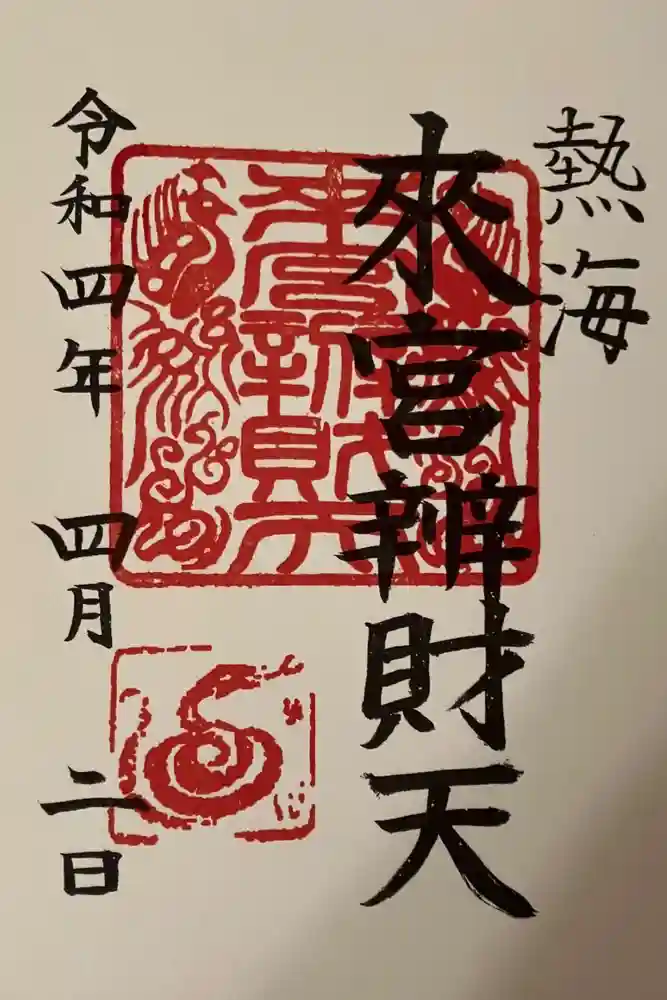 熱海
來宮辨財天
令和四年 四月 二日